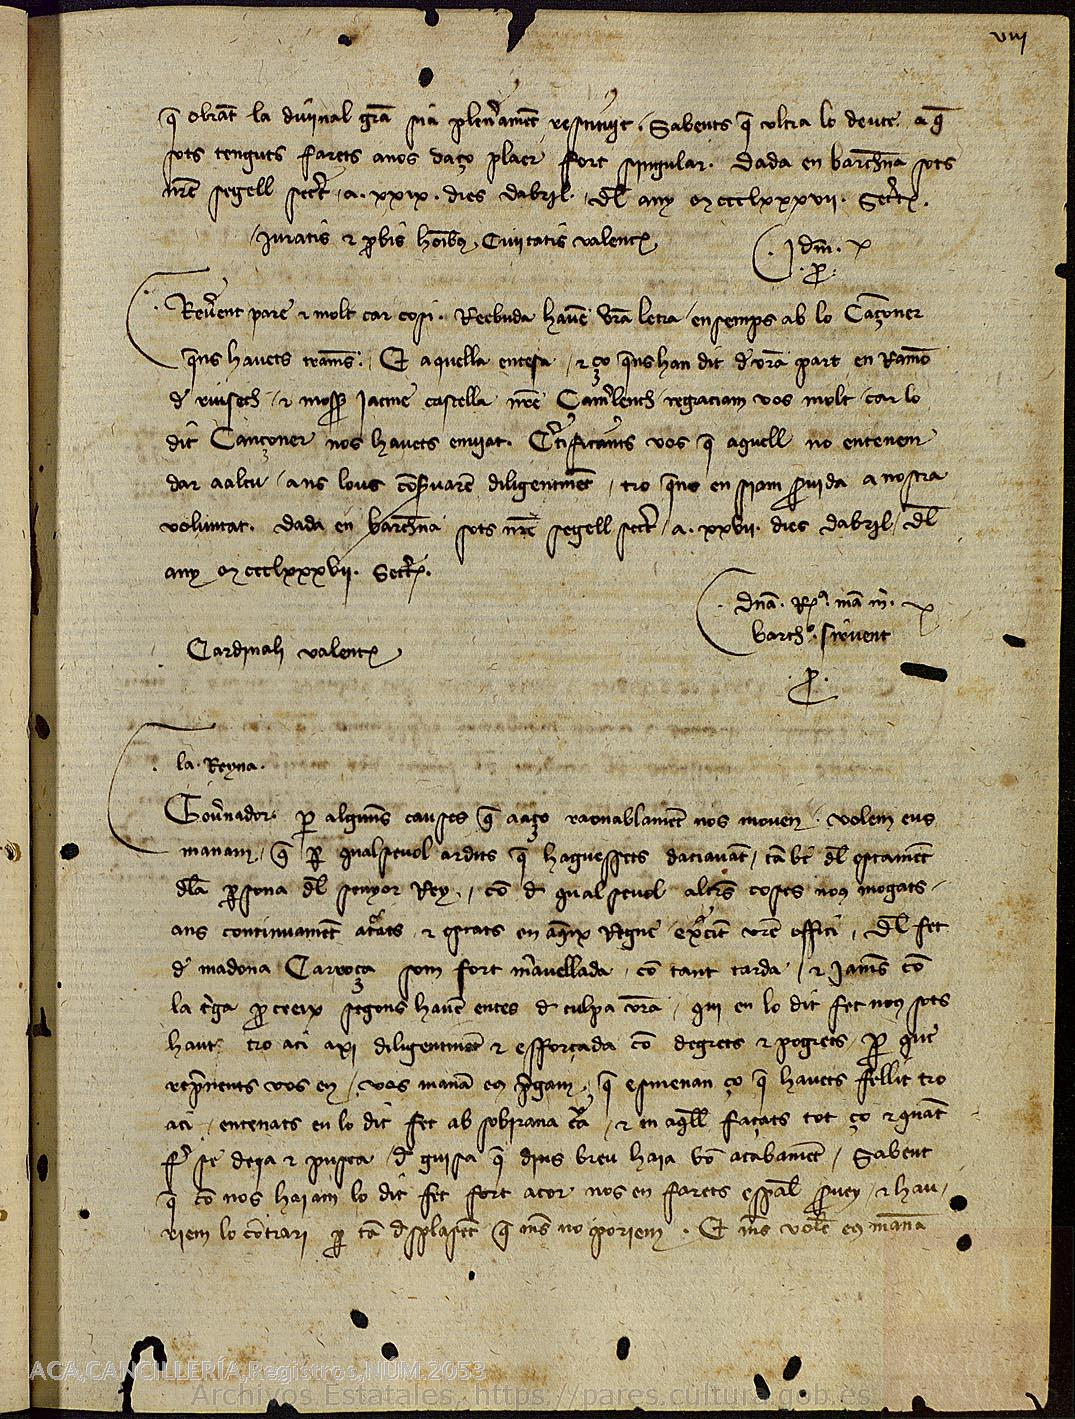 viij
q̄ obrāt la diuinal grā sia plen̄amēt restituyt. Sabents q̄ vltra lo deute a q̄
sots tenguts farets anos daço plaer fort singular. Dada en barchn̄a sots
nr̄e segell secr̄t a .xxix. dies dabril. dl̄ any Mccclxxxvii. Secr̄.
Juratis ⁊ ꝓbis hoībꝫ Ciuitatis valenc̄
Idm̄.
Reu̕ent pare ⁊ molt car cosi. Reebuda hauē vr̄a letra ensemps ab lo Cançoner
q̄ns hauets tram̄s. Et aquella entesa ⁊ ço q̄ns han dit d̕ vr̄a part en Ramō
d̕ ⁊ Jacme castella nr̄e Cam̄lench regraciam vos molt car lo
dit Cançoner nos hauets enuiat. C̄tificants vos q̄ aquell no entenem
dar aalcu ans lous cōseruarē diligentmēt tro q̄ns en siam ꝓuida a nostra
voluntat. Dada en barchn̄a sots nr̄e segell secr̄t a .xxvii. dies dabril dl̄
any Mccclxxxvii. Secr̄.
dn̄a. Rᵃ. mā m̄.
barthᵒ. sirvent
Cardinali valenc̄
ꝓ.
la Reyna.
Gou̕nador. ꝑ alguns causes q̄ aaço raonablamēt nos mouen volem eus
manam q̄ ꝑ qualseuol ardits q̄ haguessets daciauāt, tā bē dl̄ estament
dl̄a ꝑsona dl̄ senyor Rey, cō d̕ qual seuol altr̄s coses nous mogats
ans continuamēt ⁊ estats en aq̄x Regne exc̄int vr̄e offici. Dl̄ fet
d̕ madona Carroça som fort m̄auellada cō tant tarda ⁊ Jamēs cō
la t̄ga ꝑcreix segons hauē entes d̕ culpa vr̄a, qui en lo dit fet nous sots
haut tro aci axi diligentmēt ⁊ efforçada cō degrets ⁊ pogrets, ꝑ que
rep̄nents vos en, vos manā eus p̄gam q̄ esmenan ço q̄ hauets fellit tro
aci, entenats en lo dit fet ab sobirana cā ⁊ en aq̄ll façats tot ço ⁊ quāt
f̕ se deia ⁊ pusca d̕ guisa q̄ dins breu haia bō acabamēt, Sabent
q̄ cō nos haiam lo dit fet fort acor nos en farets esp̄al s̄uey, ⁊ hau-
riem lo cōtrari ꝑ tā desplasēt q̄ mēs no poriem. Et mēs volē eus manā
ACA,CANCILLERÍA,Registros,NÚM.2053
Archivos Estatales, https://pares.cultura.gob.es